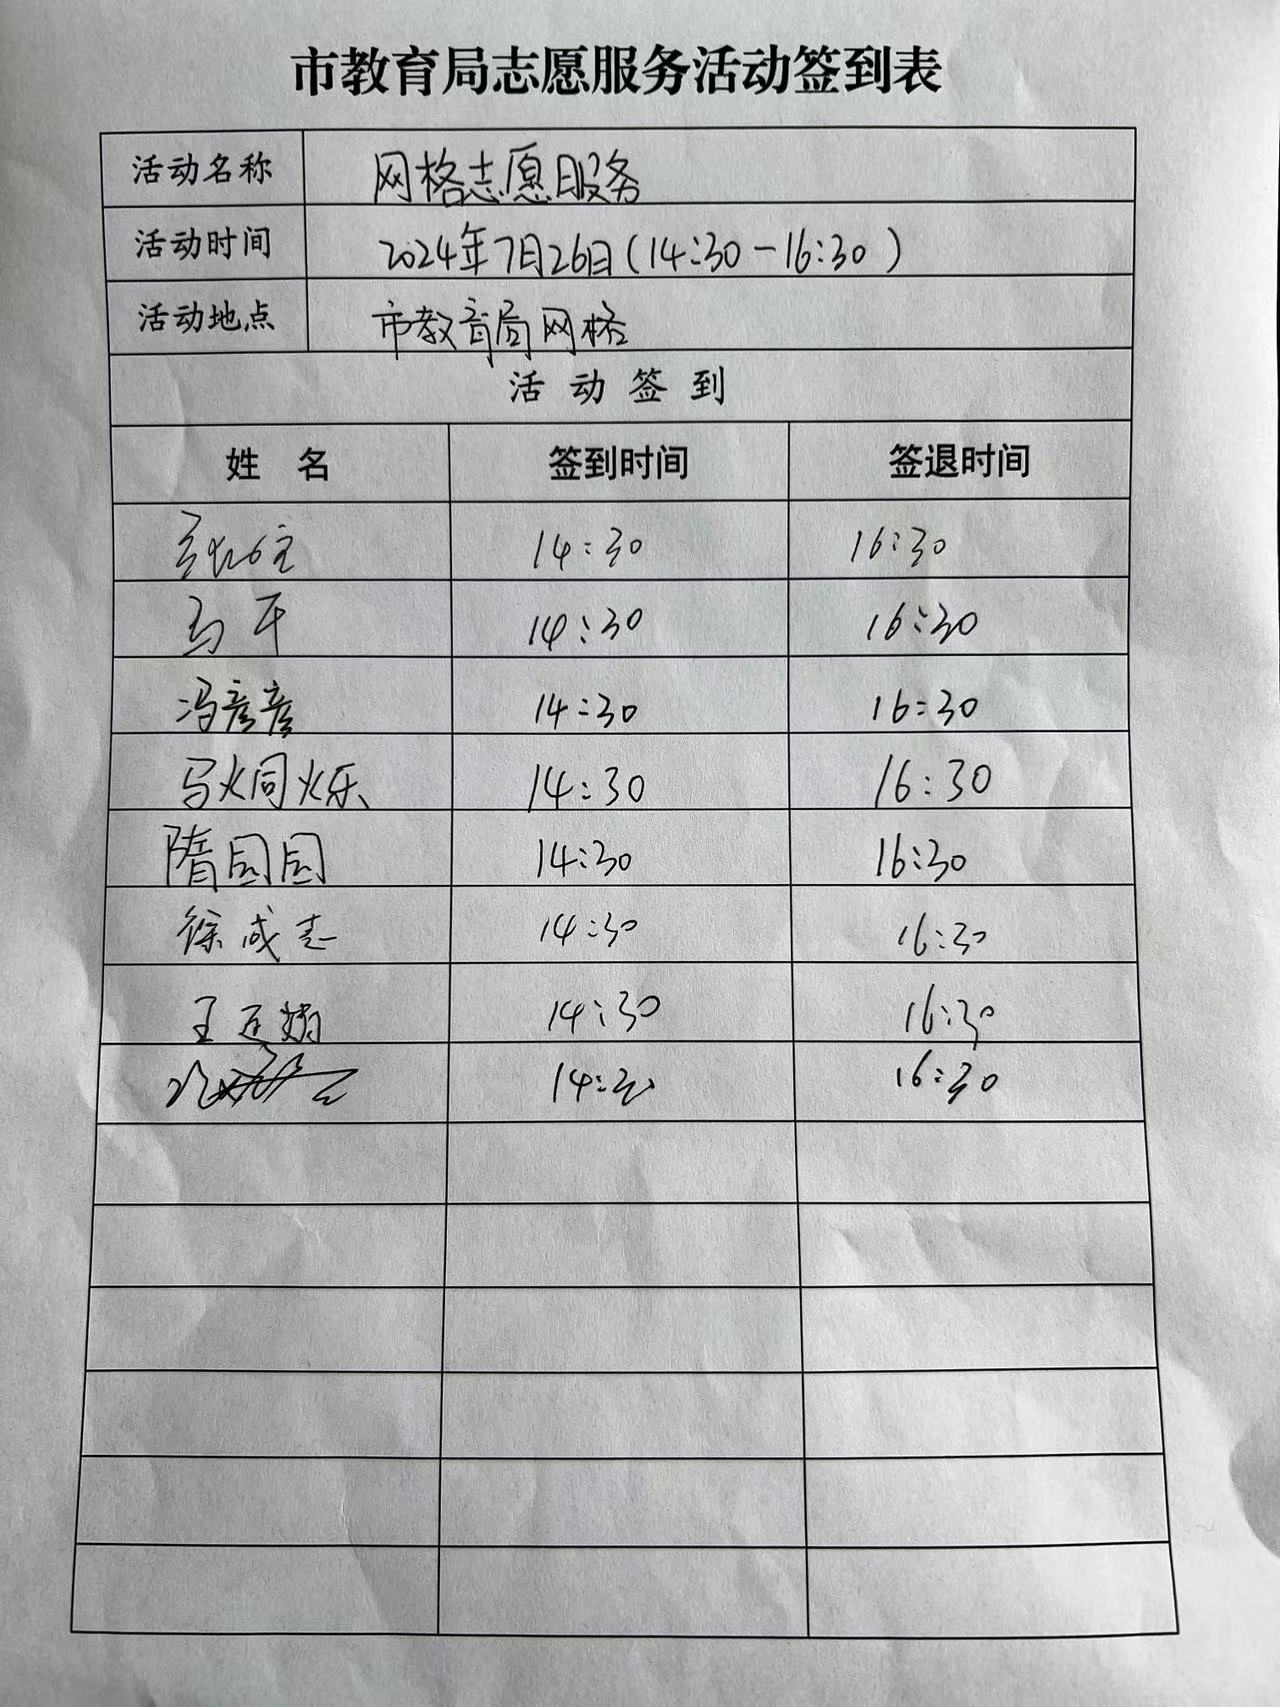 市教育局志愿服务活动签到表
活动名称 网格志愿服务
活动时间 2024年7月26日(14:30-16:30)
活动地点 市教育局网格
活动签到
姓名 签到时间 签退时间
14:30 16:30
马平 14:30 16:30
冯彦彦 14:30 16:30
马炯烁 14:30 16:30
隋园园 14:30 16:30
徐成志 14:30 16:30
王 14:30 16:30
14:30 16:30